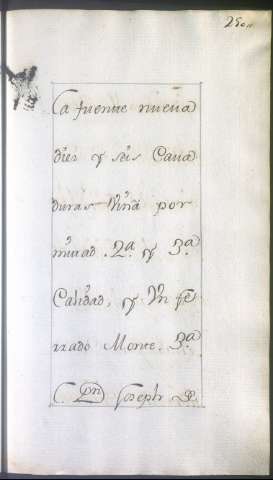 250..
La fuente nueva
diez y seis Cava
duras Viña por
mitad. 2ª y 3ª
Calidad, y Vn fe
rrado Monte. 3ª
C. Dn Joseph